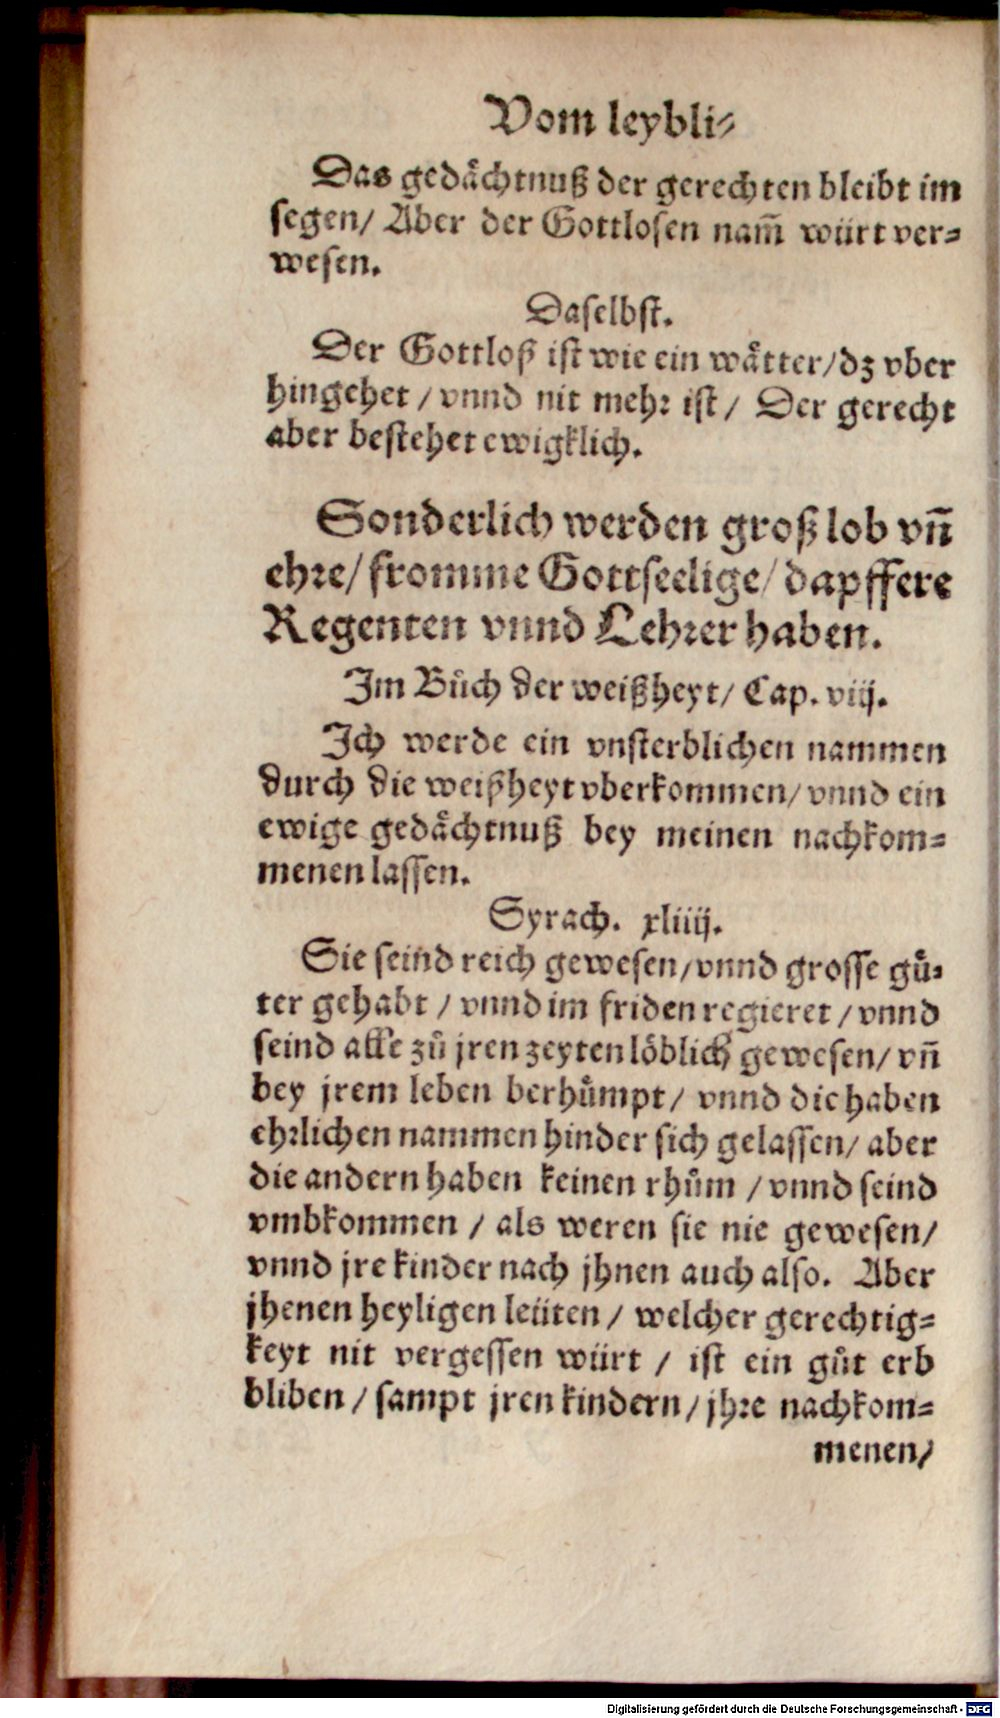 Vom leybli⸗
Das gedaͤchtnuß der gerechten bleibt im
segen/ Aber der Gottlosen nam̃ würt ver⸗
wesen.
Daselbst.
Der Gottloß ist wie ein waͤtter/dz vber
hingehet / vnnd nit mehr ist / Der gerecht
aber bestehet ewigklich.
Sonderlich werden groß lob vn̄
ehre/ fromme Gottseelige/ dapffere
Regenten vnnd Lehrer haben.
Im Bůch der weißheyt/ Cap. viij.
Ich werde ein vnsterblichen nammen
durch die weißheyt vberkommen/ vnnd ein
ewige gedaͤchtnuß bey meinen nachkom⸗
menen lassen.
Syrach. xliiij.
Sie seind reich gewesen/vnnd grosse guͤ⸗
ter gehabt / vnnd im friden regieret / vnnd
seind alle zů jren zeyten loͤblich gewesen/ vn̄
bey jrem leben berhůmpt/ vnnd die haben
ehrlichen nammen hinder sich gelassen/ aber
die andern haben keinen rhům / vnnd seind
vmbkommen / als weren sie nie gewesen/
vnnd jre kinder nach jhnen auch also. Aber
jhenen heyligen leüten / welcher gerechtig⸗
keyt nit vergessen würt / ist ein gůt erb
bliben / sampt jren kindern / jhre nachkom⸗
menen/
Digitalisierung gefördert durch die Deutsche Forschungsgemeinschaft - DFG